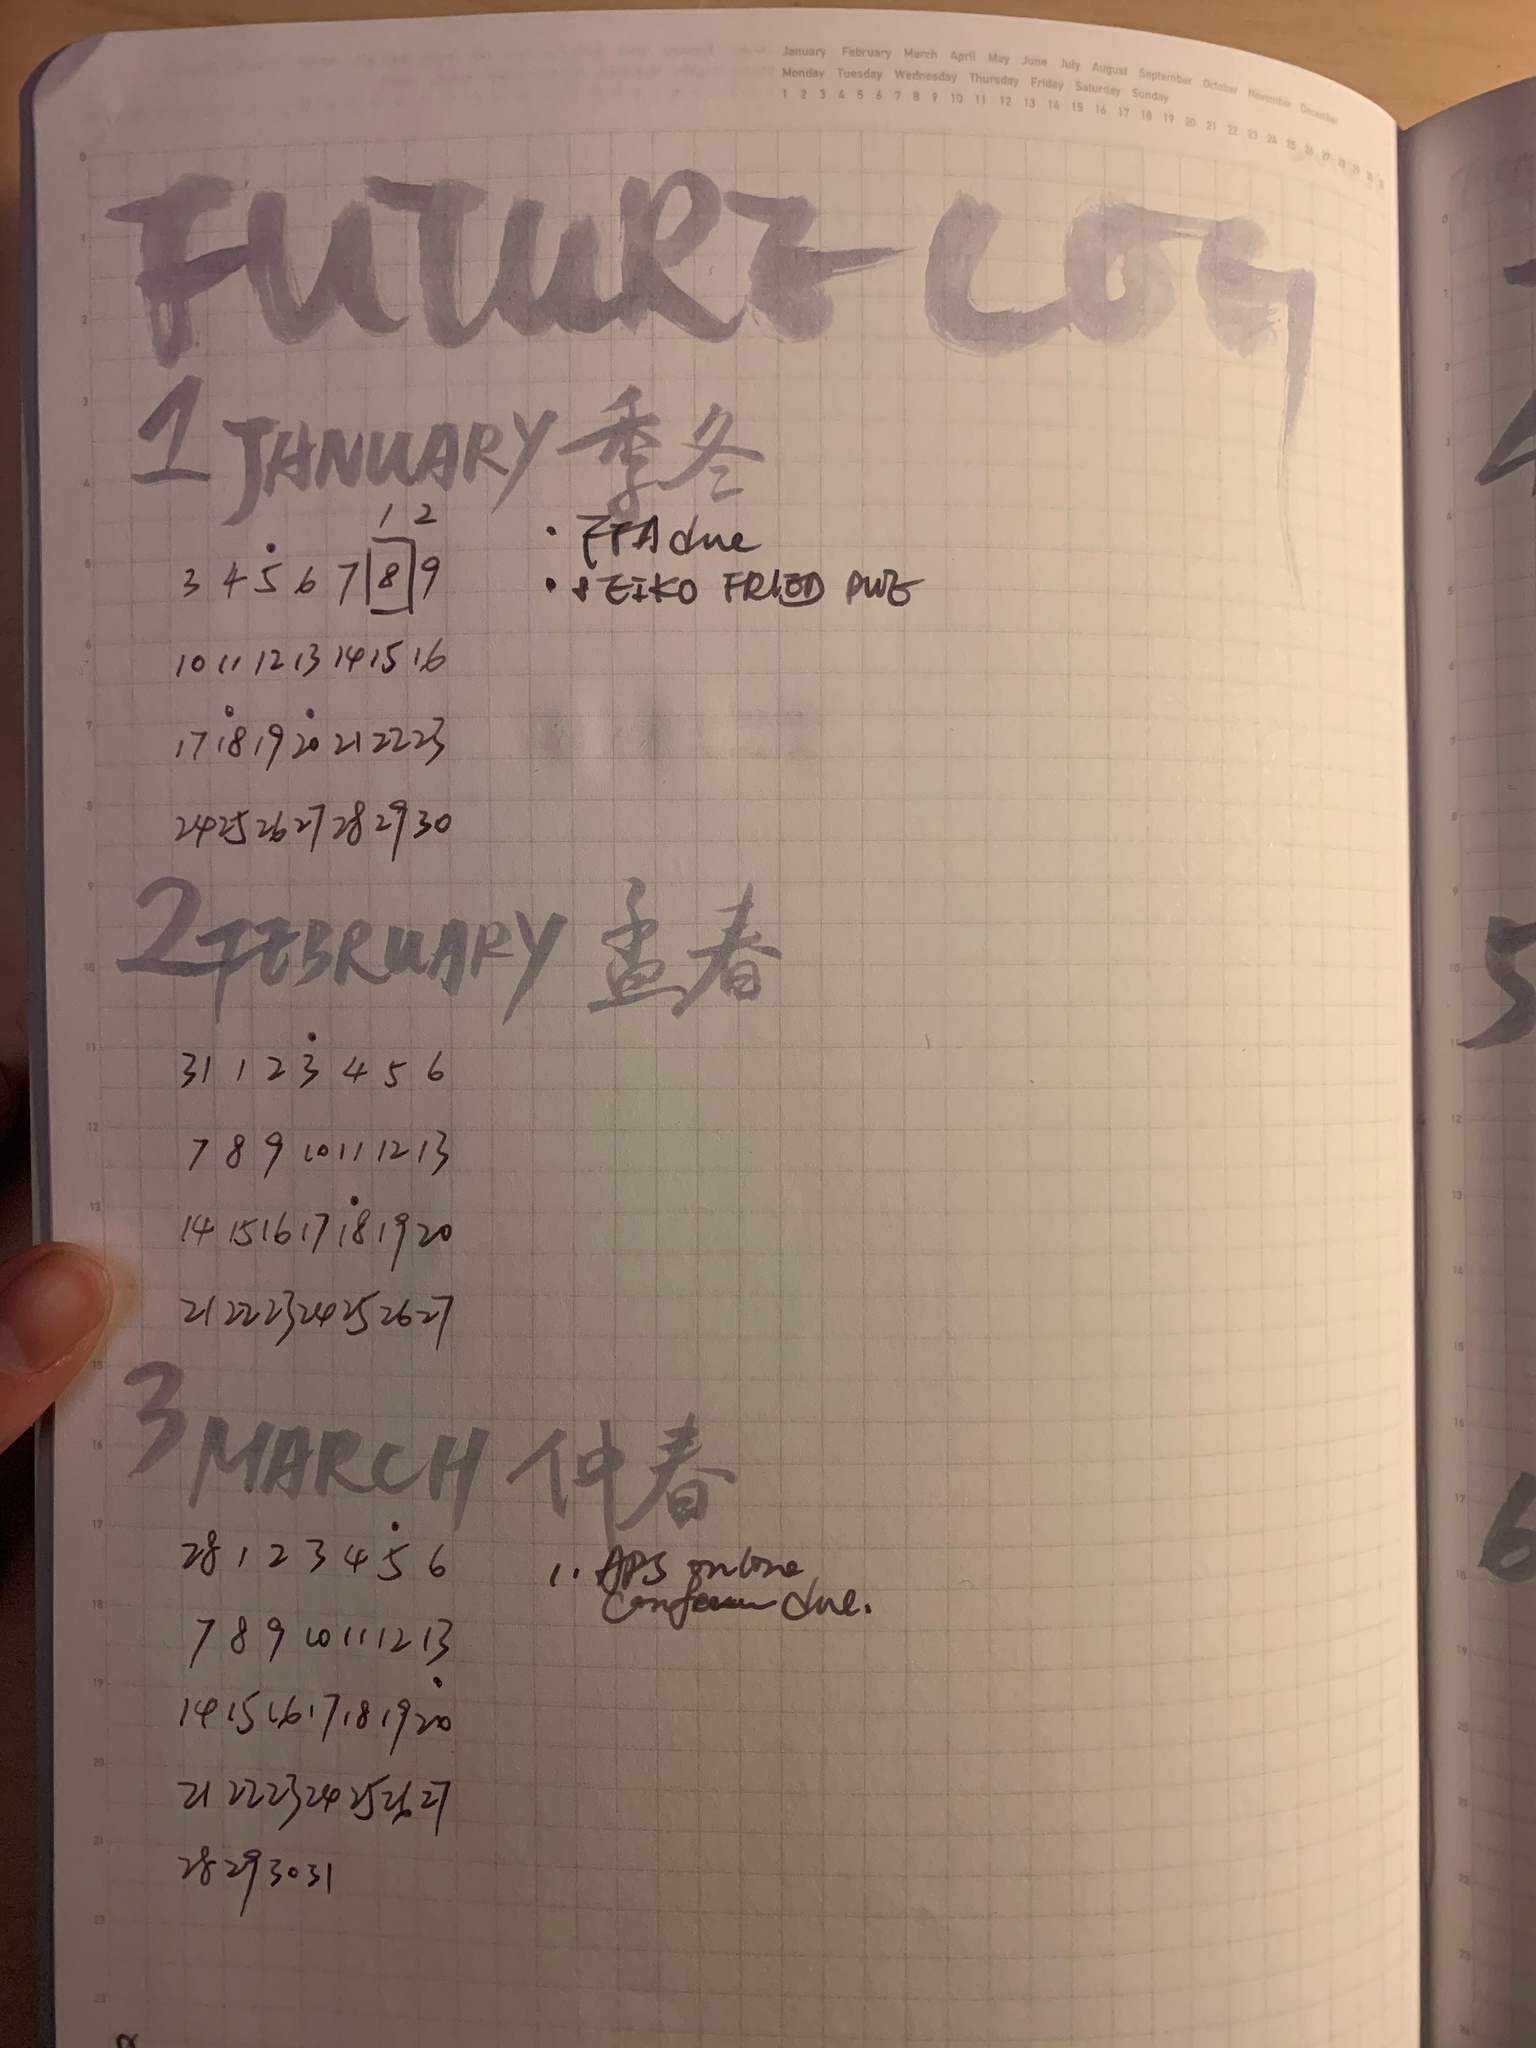 January February March April May June July August September October November December
Monday Tuesday Wednesday Thursday Friday Saturday Sunday
1 2 3 4 5 6 7 8 9 10 11 12 13 14 15 16 17 18 19 20 21 22 23 24 25 26 27 28 29 30 31
FUTURE LOG
1 JANUARY 季冬
1 2
3 4 5 6 7 8 9
10 11 12 13 14 15 16
17 18 19 20 21 22 23
24 25 26 27 28 29 30
due
SEIKO FRIED
2 FEBRUARY 孟春
31 1 2 3 4 5 6
7 8 9 10 11 12 13
14 15 16 17 18 19 20
21 22 23 24 25 26 27
3 MARCH 仲春
28 1 2 3 4 5 6
7 8 9 10 11 12 13
14 15 16 17 18 19 20
21 22 23 24 25 26 27
28 29 30 31
1. APS online
due.
5
6